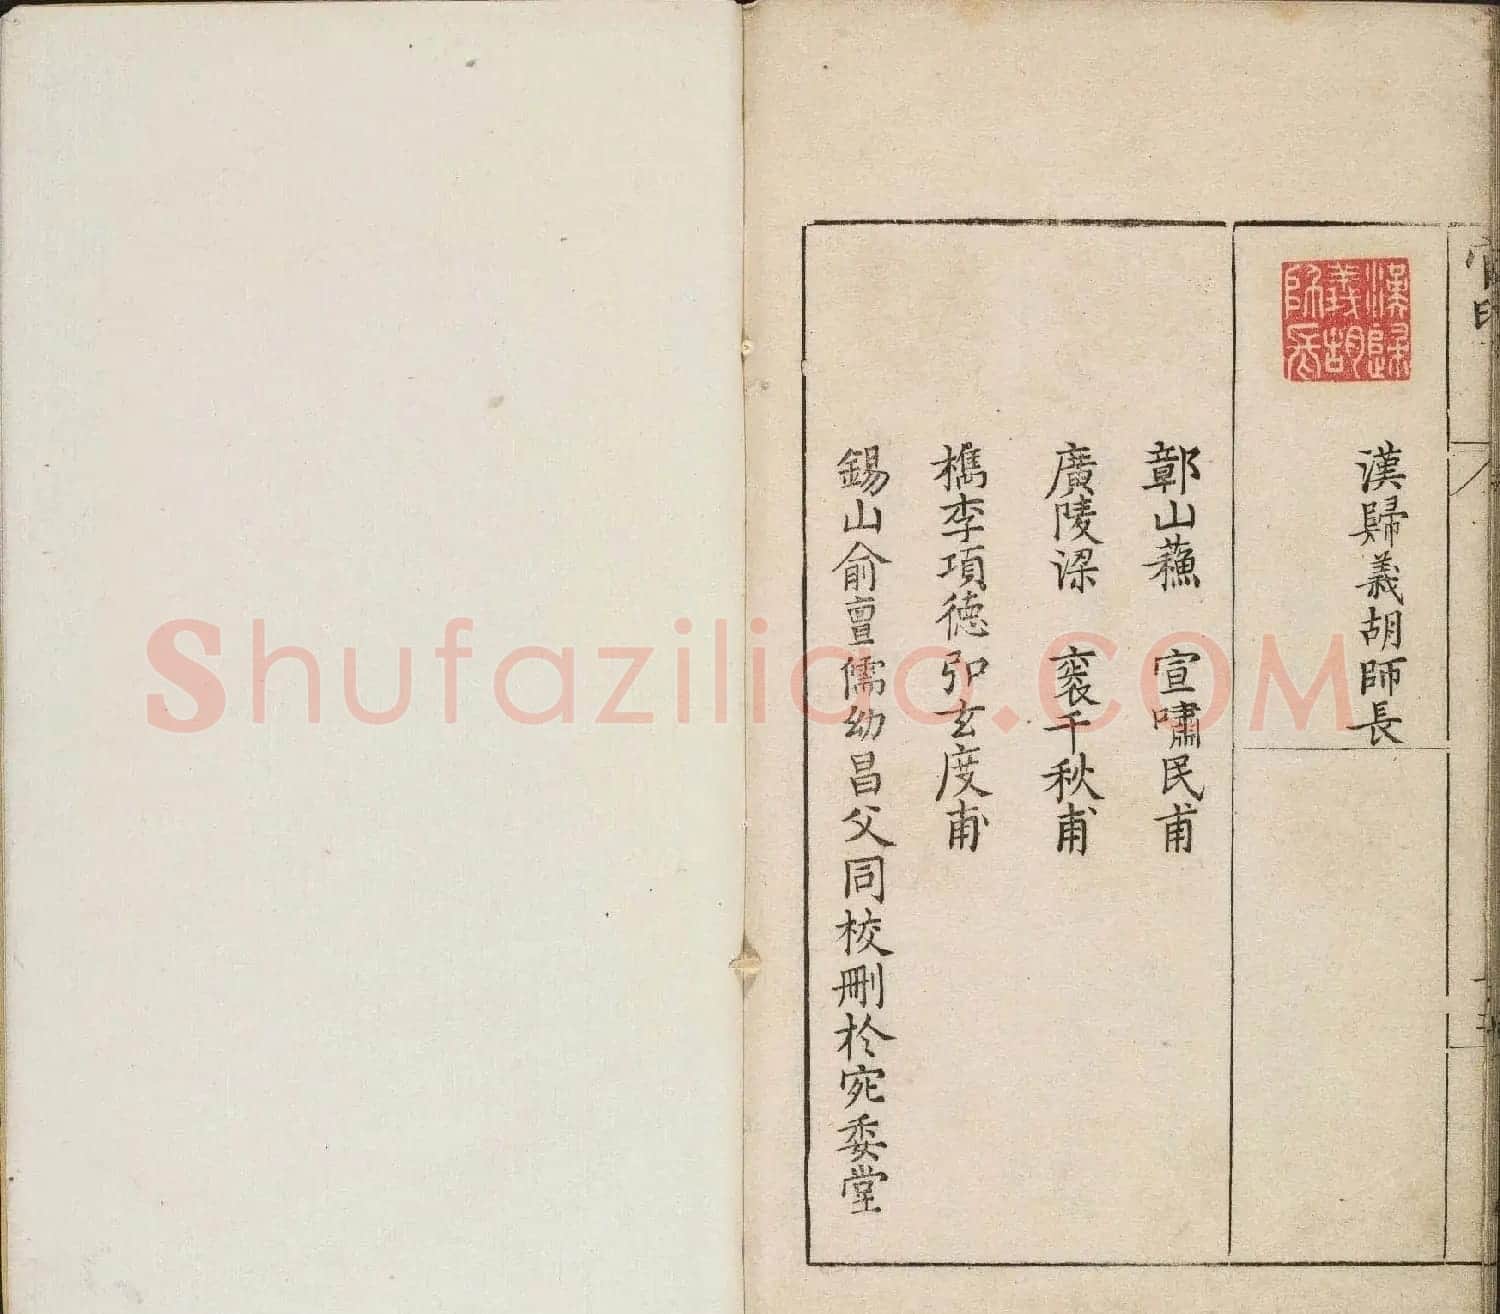 官印
漢歸義胡師長
漢歸義胡師長
鄣山蘓 宣嘯民甫
廣陵梁 袠千秋甫
檇李項德弘玄度甫
錫山俞亶儒幼昌父同校刪於宛委堂
Shufaziliao.COM